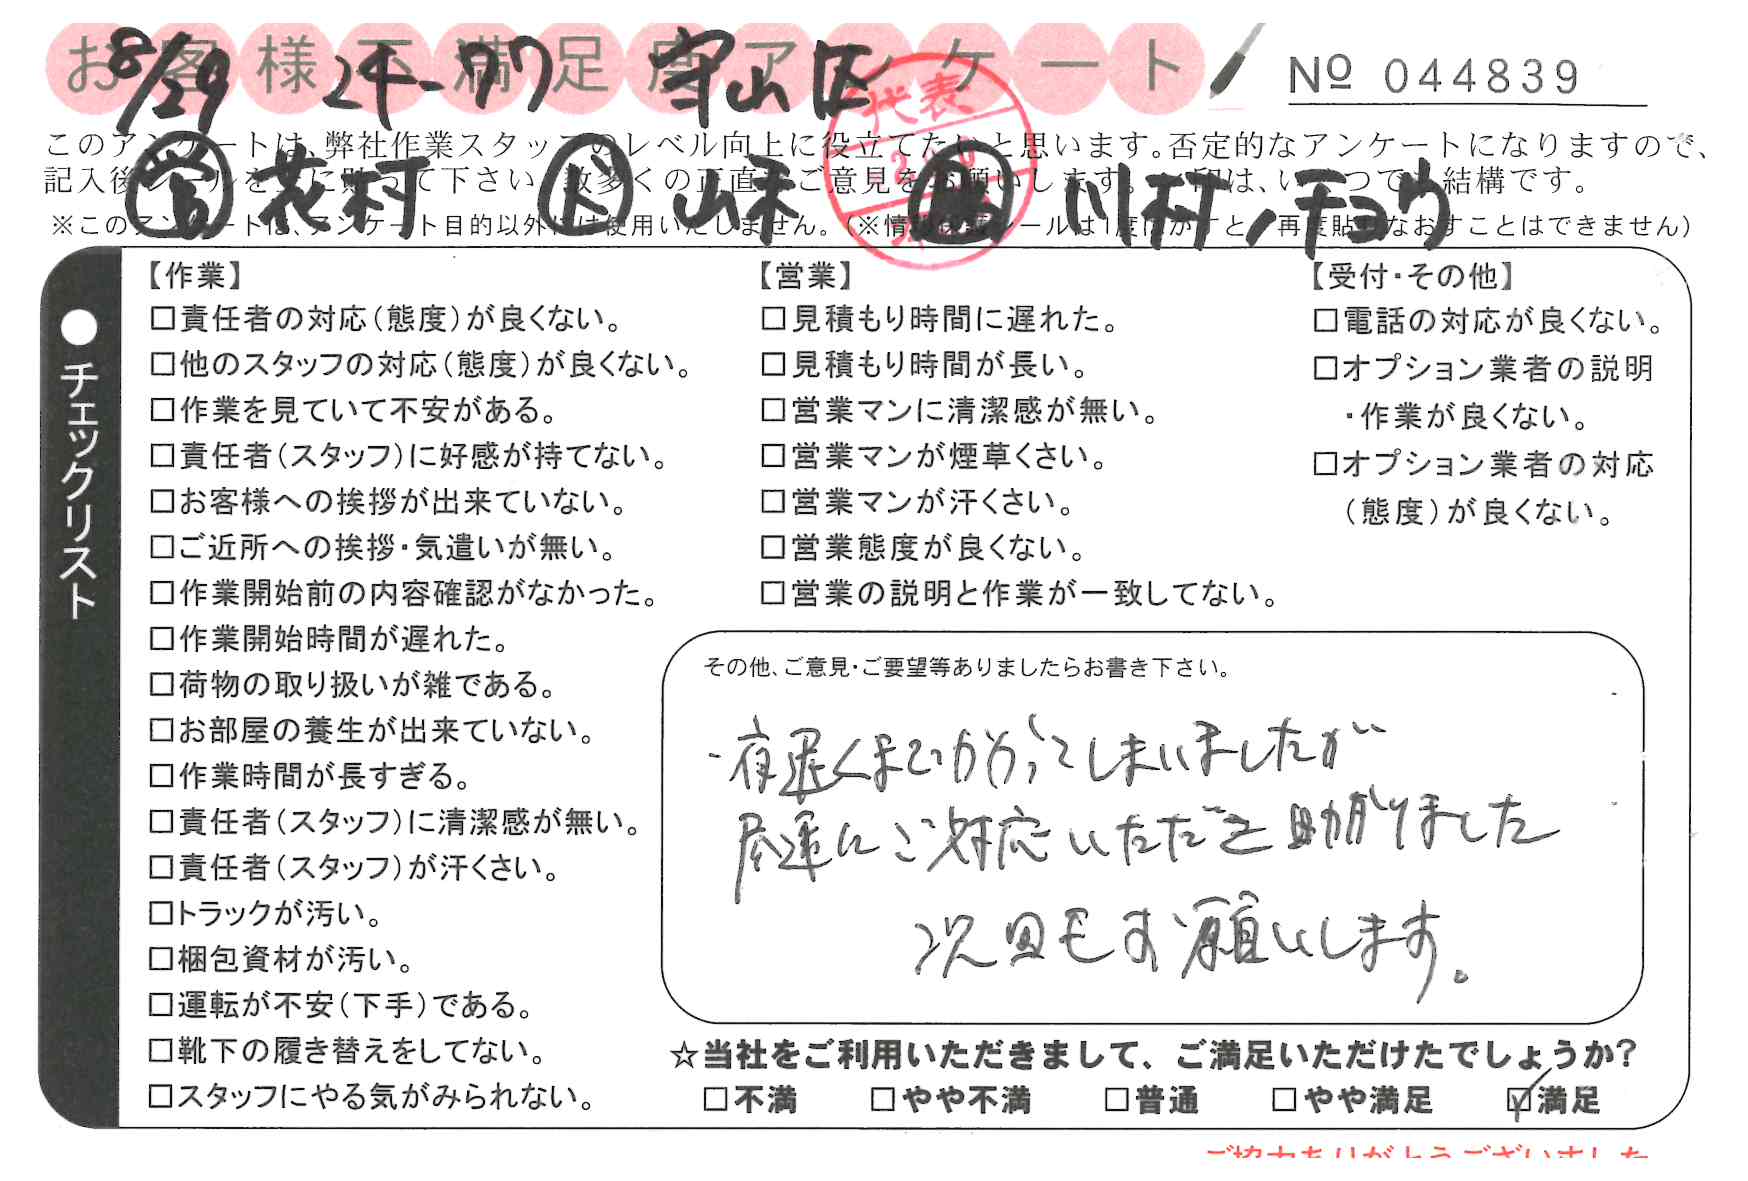 お客様不満足度アンケート
№ 044839
8/29 2チーワワ 守山区
このアンケートは、弊社作業スタッフのレベル向上に役立てたいと思います。否定的なアンケートになりますので、
記入後シールを上に貼って下さい。数多くの正直なご意見をお願いします。
営 花村 ド 山本 川村ノチョウ
※このアンケートは、アンケート目的以外には使用いたしません。(※情報保護シールは1度はがすと、再度貼りなおすことはできません)
代表
●チェックリスト
【作業】
□責任者の対応(態度)が良くない。
□他のスタッフの対応(態度)が良くない。
□作業を見ていて不安がある。
□責任者(スタッフ)に好感が持てない。
□お客様への挨拶が出来ていない。
□ご近所への挨拶・気遣いが無い。
□作業開始前の内容確認がなかった。
□作業開始時間が遅れた。
□荷物の取り扱いが雑である。
□お部屋の養生が出来ていない。
□作業時間が長すぎる。
□責任者(スタッフ)に清潔感が無い。
□責任者(スタッフ)が汗くさい。
□トラックが汚い。
□梱包資材が汚い。
□運転が不安(下手)である。
□靴下の履き替えをしてない。
□スタッフにやる気がみられない。
【営業】
□見積もり時間に遅れた。
□見積もり時間が長い。
□営業マンに清潔感が無い。
□営業マンが煙草くさい。
□営業マンが汗くさい。
□営業態度が良くない。
□営業の説明と作業が一致してない。
【受付・その他】
□電話の対応が良くない。
□オプション業者の説明
・作業が良くない。
□オプション業者の対応
(態度)が良くない。
その他、ご意見・ご要望等ありましたらお書き下さい。
・夜遅くまでかかってしまいましたが
迅速にご対応いただき助かりました
次回もお願いします。
☆当社をご利用いただきまして、ご満足いただけたでしょうか?
□不満 □やや不満 □普通 □やや満足 ☑満足
ご協力ありがとうございました